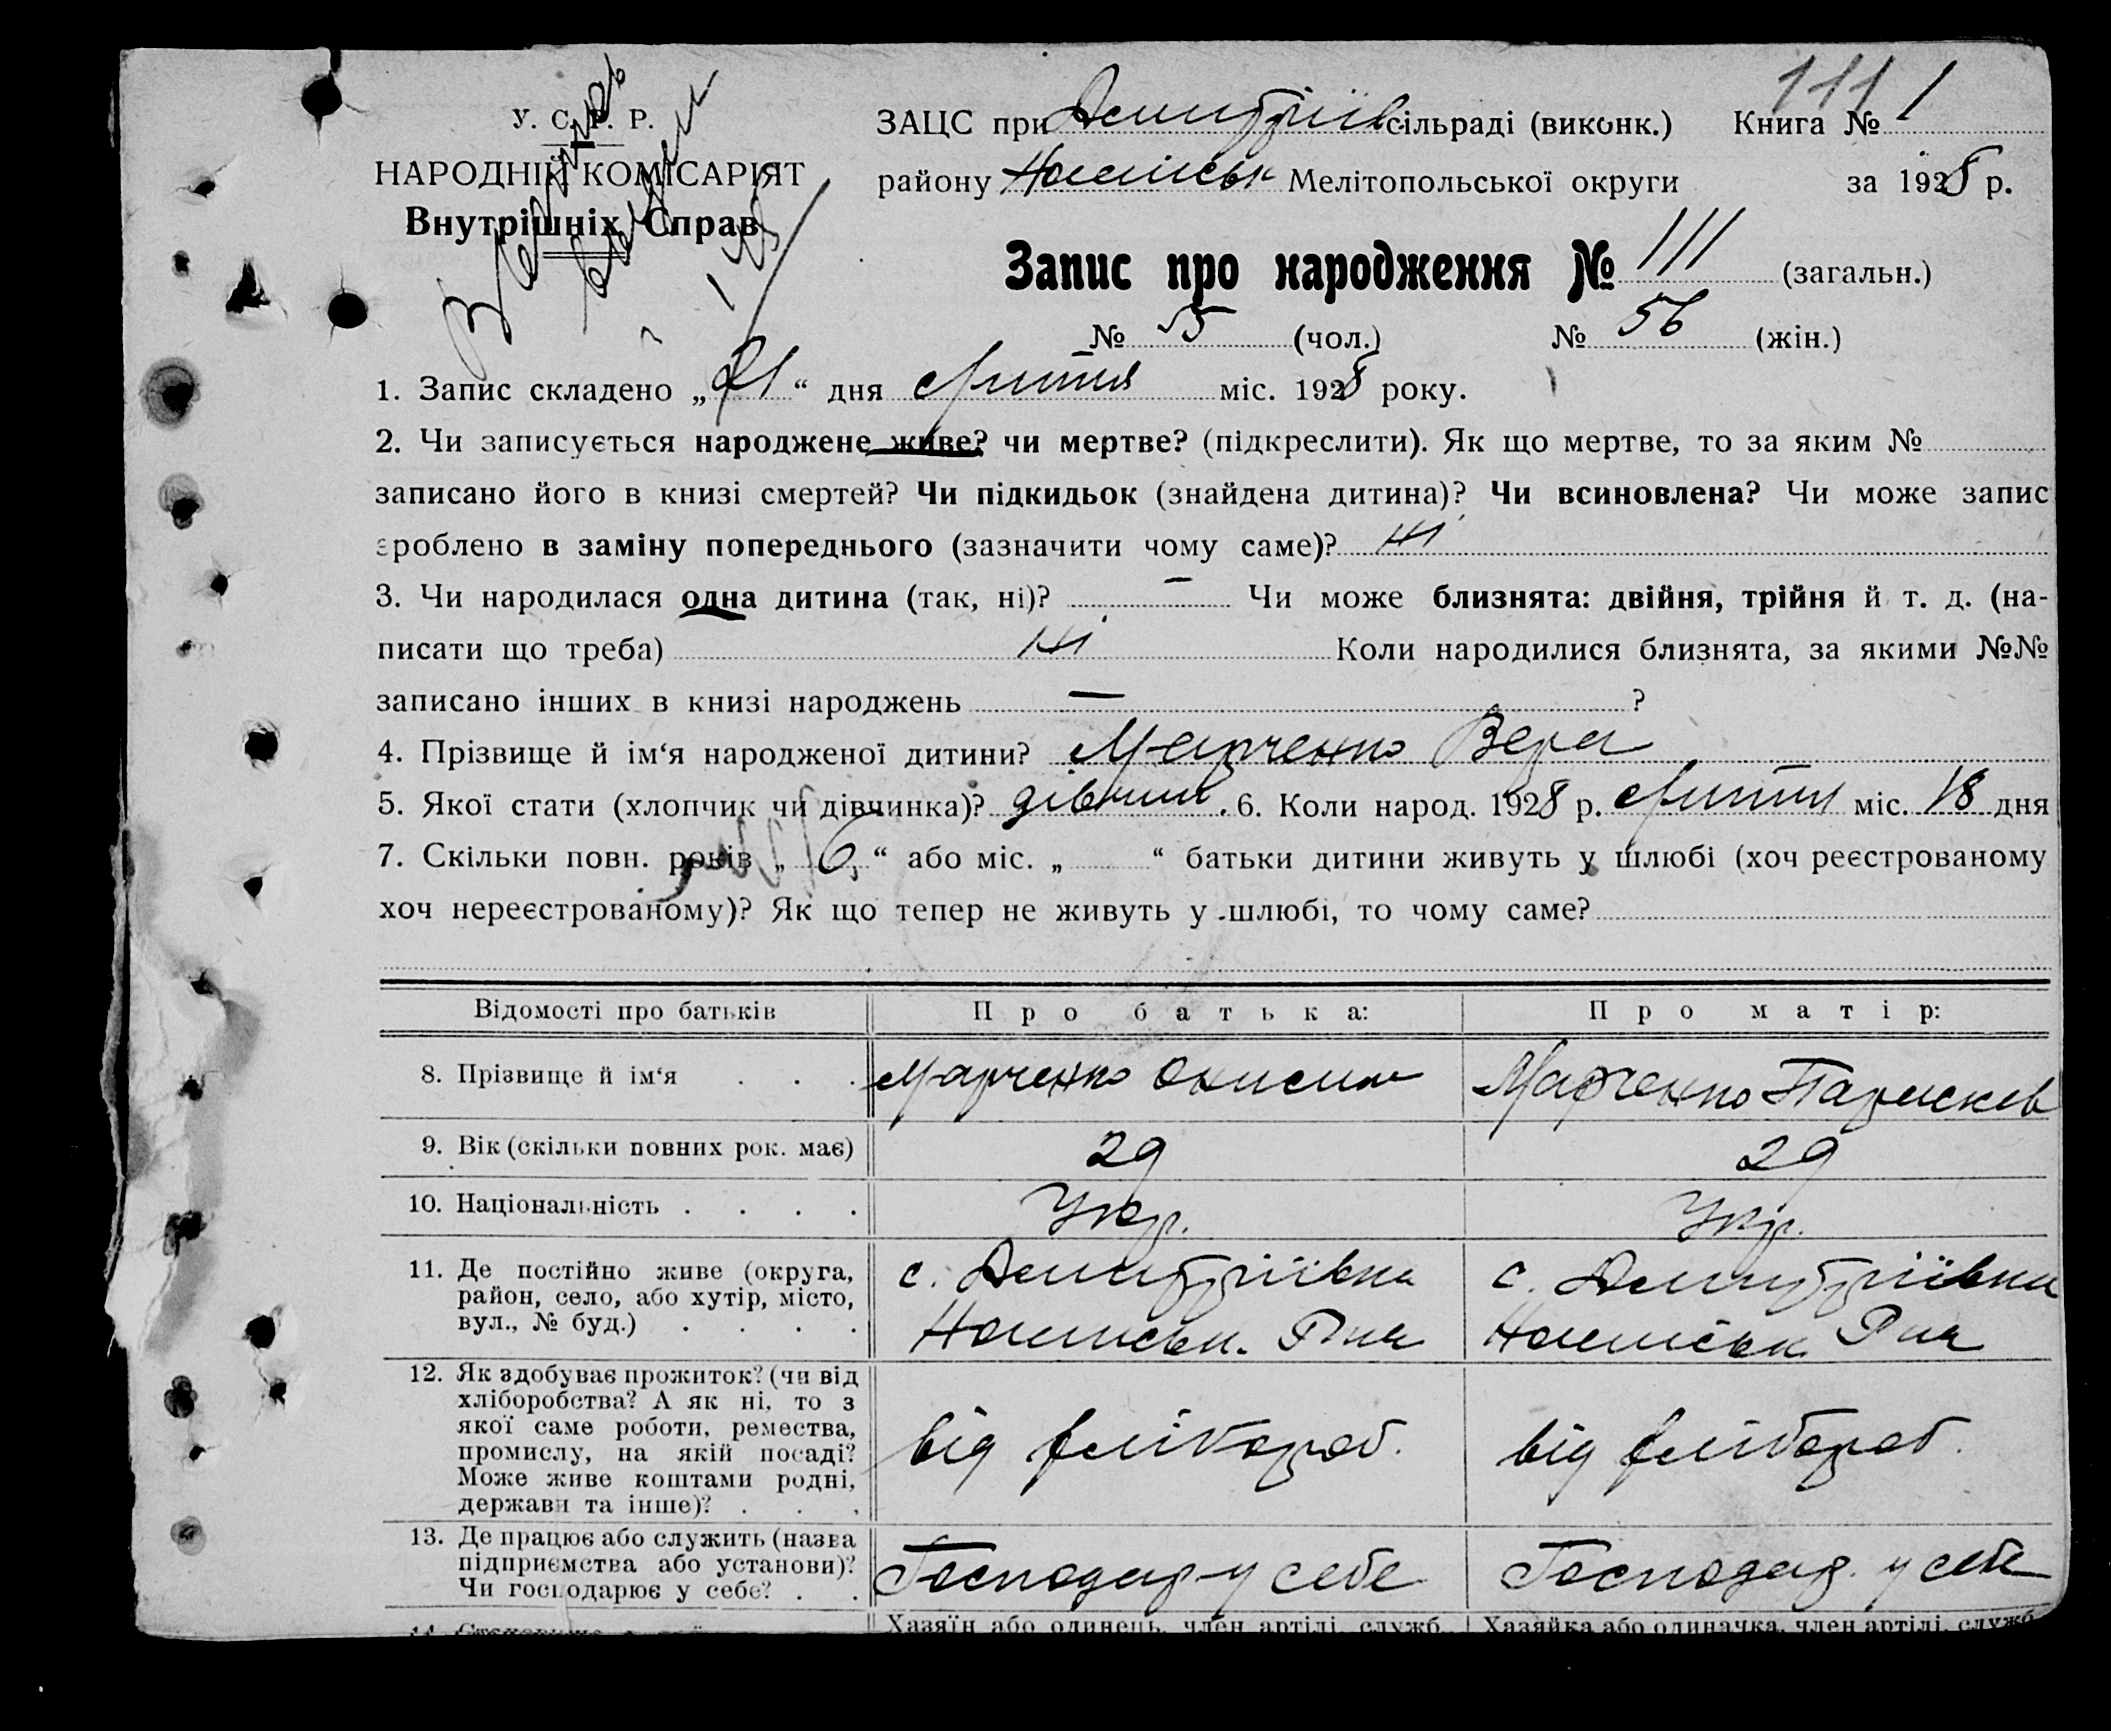 111
У. С. Р. Р.
НАРОДНІЙ КОМІСАРІЯТ
Внутрішніх Справ
ЗАЦС при Дмитріїв сільраді (виконк.) Книга № 1
району Мелітопольської округи за 1928 р.
Запис про народження № 111 (загальн.)
№ 55 (чол.) № 56 (жін.)
1. Запис складено „21“ дня міс. 1928 року.
2. Чи записується народжене живе? чи мертве? (підкреслити). Як що мертве, то за яким №
записано його в книзі смертей? Чи підкидьок (знайдена дитина)? Чи всиновлена? Чи може запис
зроблено в заміну попереднього (зазначити чому саме)? ні
3. Чи народилася одна дитина (так, ні)? — Чи може близнята: двійня, трійня й т. д. (на-
писати що треба) ні Коли народилися близнята, за якими №№
записано інших в книзі народжень — ?
4. Прізвище й ім‘я народженої дитини? Марченко Вера
5. Якої стати (хлопчик чи дівчинка)? дівчин. 6. Коли народ. 1928 р. міс. 18 дня
7. Скільки повн. років „6“ або міс. „ “ батьки дитини живуть у шлюбі (хоч реєстрованому
хоч нереєстрованому)? Як що тепер не живуть у шлюбі, то чому саме?
Відомості про батьків Про батька: Про матір:
8. Прізвище й ім‘я . . . Марченко Онисим Марченко Парасков
9. Вік (скільки повних рок. має) 29 29
10. Національність . . . . Укр. Укр.
11. Де постійно живе (округа,
район, село, або хутір, місто,
вул., № буд.) . . . .
с. Дмитріївка
Р-на
с. Дмитріївка
Р-на
12. Як здобуває прожиток? (чи від
хліборобства? А як ні, то з
якої саме роботи, ремества,
промислу, на якій посаді?
Може живе коштами родні,
держави та інше)? . . .
від хлібороб.
від хлібороб.
13. Де працює або служить (назва
підприємства або установи)?
Чи господарює у себе? . .
Господар у себе
Господар. у себе
Хазяїн або одинець, член артілі, служб. Хазяйка або одиначка, член артілі, служб